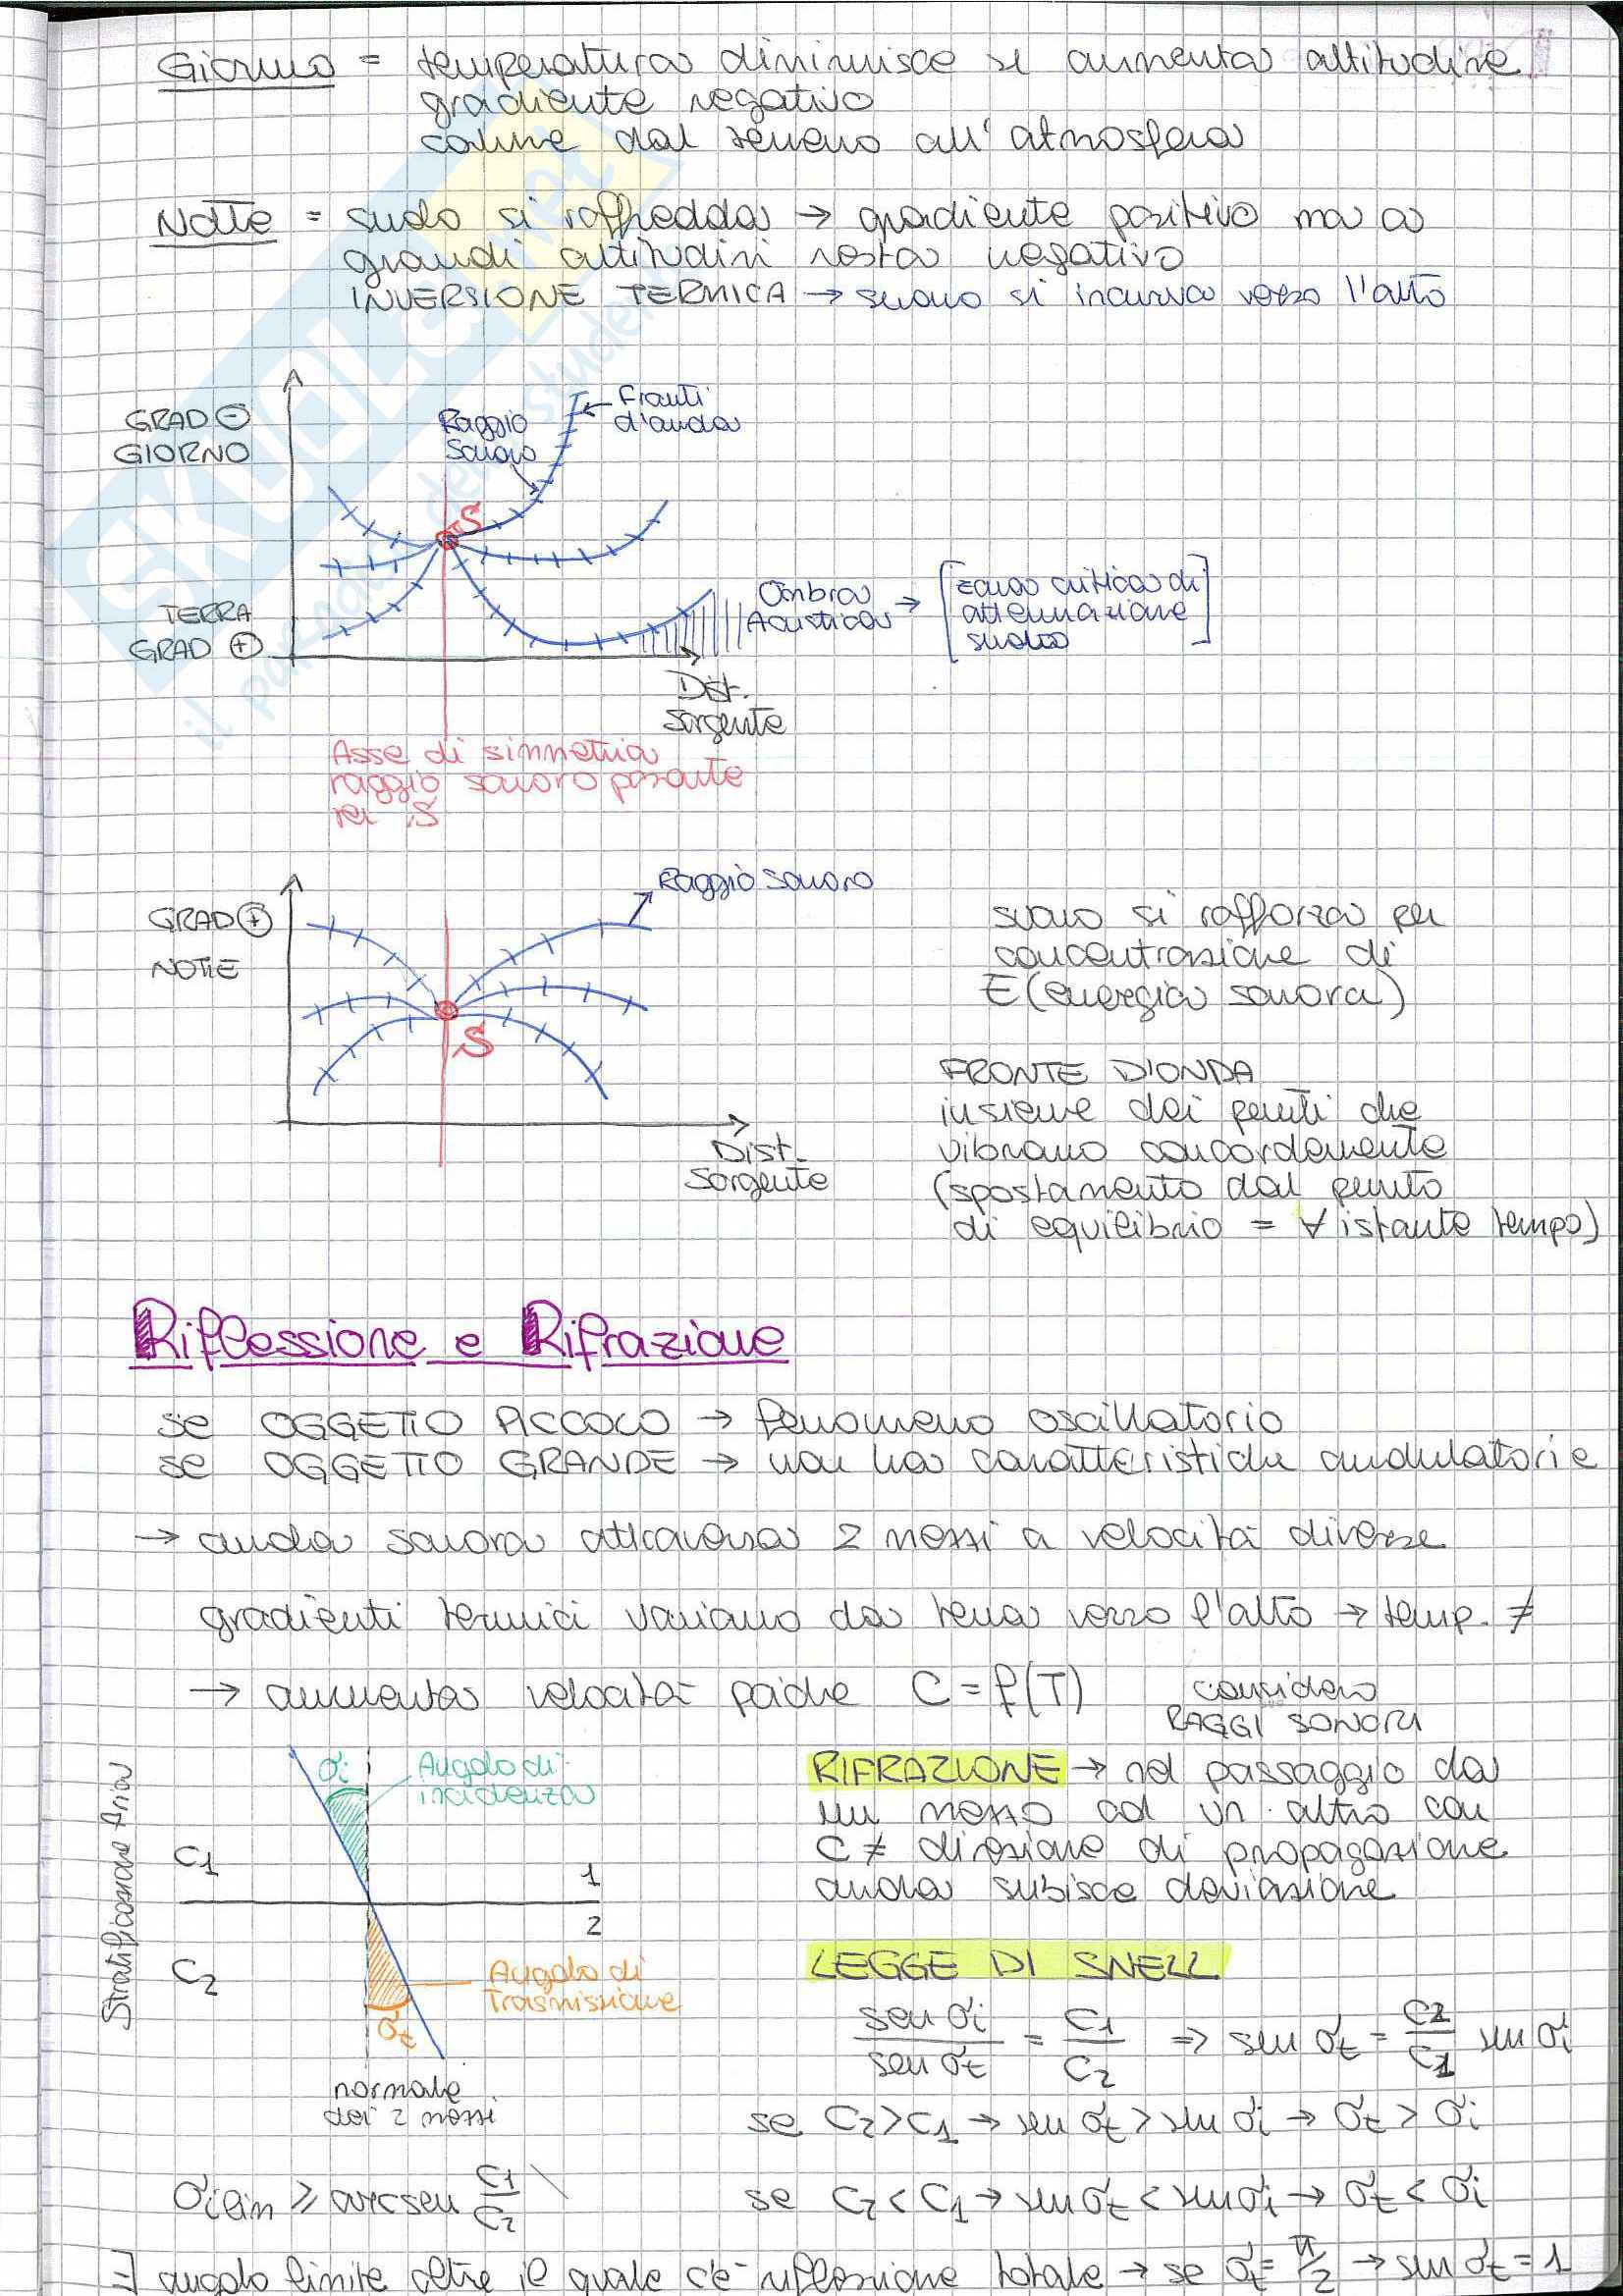 Giorno = temperatura diminuisce se aumenta altitudine
gradiente negativo
calore dal terreno all'atmosfera
Notte = suolo si raffredda → gradiente positivo ma a
grandi altitudini resta negativo
INVERSIONE TERMICA → suono si incurva verso l'alto
GRAD ⊖
GIORNO
Raggio
Sonoro
Fronti
d'onda
S
TERRA
GRAD ⊕
Ombra
Acustica → [zona critica di
attenuazione
suono]
Dist.
Sorgente
Asse di simmetria
raggio sonoro passante
per S
GRAD ⊕
NOTTE
Raggio sonoro
S
Dist.
Sorgente
suono si rafforza per
concentrazione di
E (energia sonora)
FRONTE D'ONDA
insieme dei punti che
vibrano concordemente
(spostamento dal punto
di equilibrio = ∀ istante tempo)
Riflessione e Rifrazione
se OGGETTO PICCOLO → fenomeno oscillatorio
se OGGETTO GRANDE → non ha caratteristiche ondulatorie
→ onda sonora attraversa 2 mezzi a velocità diverse
gradienti termici variano da terra verso l'alto → temp. ≠
→ aumenta velocità poiché C = f(T)
considero
RAGGI SONORI
Stratificazione Aria
σi
Angolo di
incidenza
C1
1
2
C2
Angolo di
Trasmissione
σt
normale
dei 2 mezzi
RIFRAZIONE → nel passaggio da
un mezzo ad un altro con
C ≠ direzione di propagazione
onda subisce deviazione
LEGGE DI SNELL
sen σi / sen σt = C1 / C2 ⇒ sen σt = C2 / C1 sen σi
se C2 > C1 → sen σt > sen σi → σt > σi
σi lim ≥ arcsen C1 / C2
se C2 < C1 → sen σt < sen σi → σt < σi
⇒ angolo limite oltre il quale c'è riflessione totale → se σt = π/2 → sen σt = 1